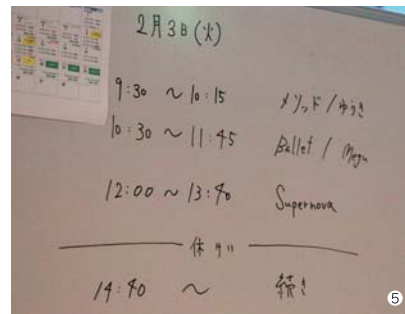 2月3日(火)
9:30 ~ 10:15 メソッド/ゆうき
10:30 ~ 11:45 Ballet / Megu
12:00 ~ 13:40 Supernova
休けい
14:40 ~ 続き
5